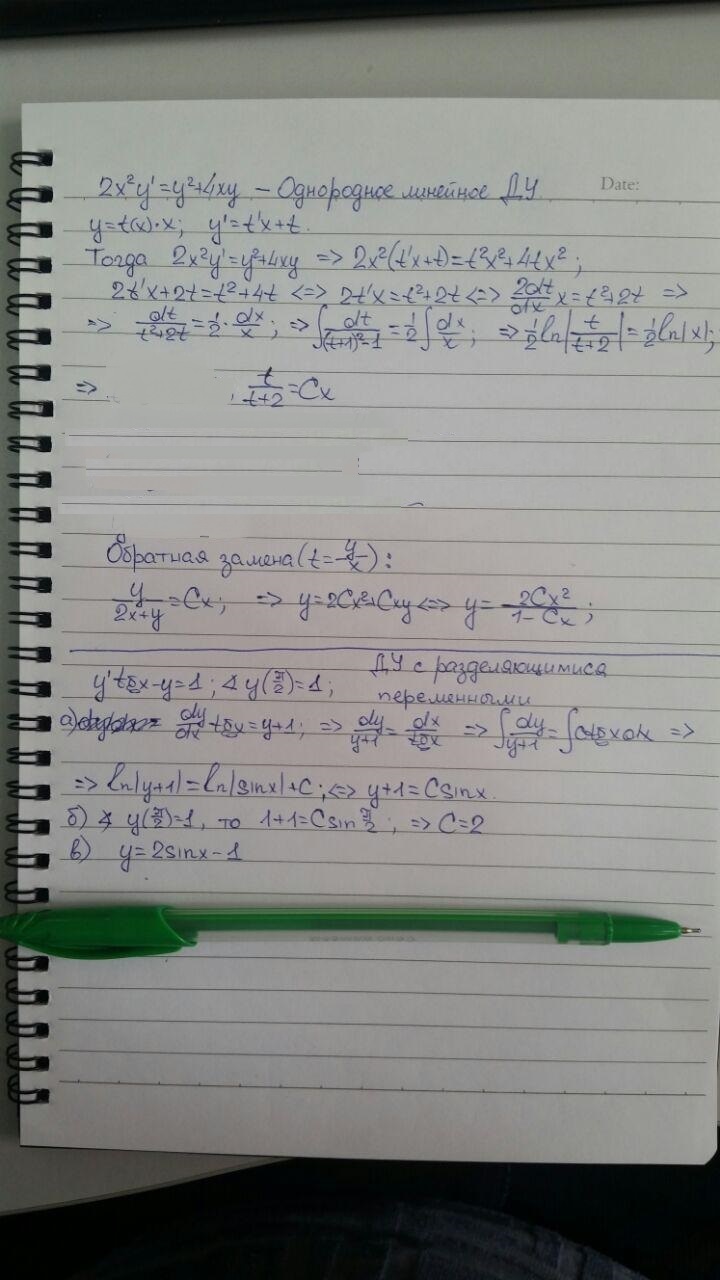 Date:
2x²y'=y²+4xy – Однородное линейное ДУ
y=t(x)·x; y'=t'x+t.
Тогда 2x²y'=y²+4xy => 2x²(t'x+t)=t²x²+4tx²;
2t'x+2t=t²+4t <=> 2t'x=t²+2t <=> 2dt/dx x=t²+2t =>
=> dt/t²+2t=1/2·dx/x; => ∫dt/(t+1)²-1=1/2∫dx/x; => 1/2ln|t/t+2|=1/2ln|x|;
=> t/t+2=Cx
Обратная замена(t=y/x):
y/2x+y=Cx; => y=2Cx²+Cxy<=> y=2Cx²/1-Cx;
y'tgx-y=1; ∢ y(π/2)=1; ДУ с разделяющимися
переменными
а) dy/dx tgx=y+1; => dy/y+1=dx/tgx => ∫dy/y+1=∫ctgxdx =>
=> ln|y+1|=ln|sinx|+C; <=> y+1=Csinx.
б) ∢ y(π/2)=1, то 1+1=Csinπ/2; => C=2
в) y=2sinx-1